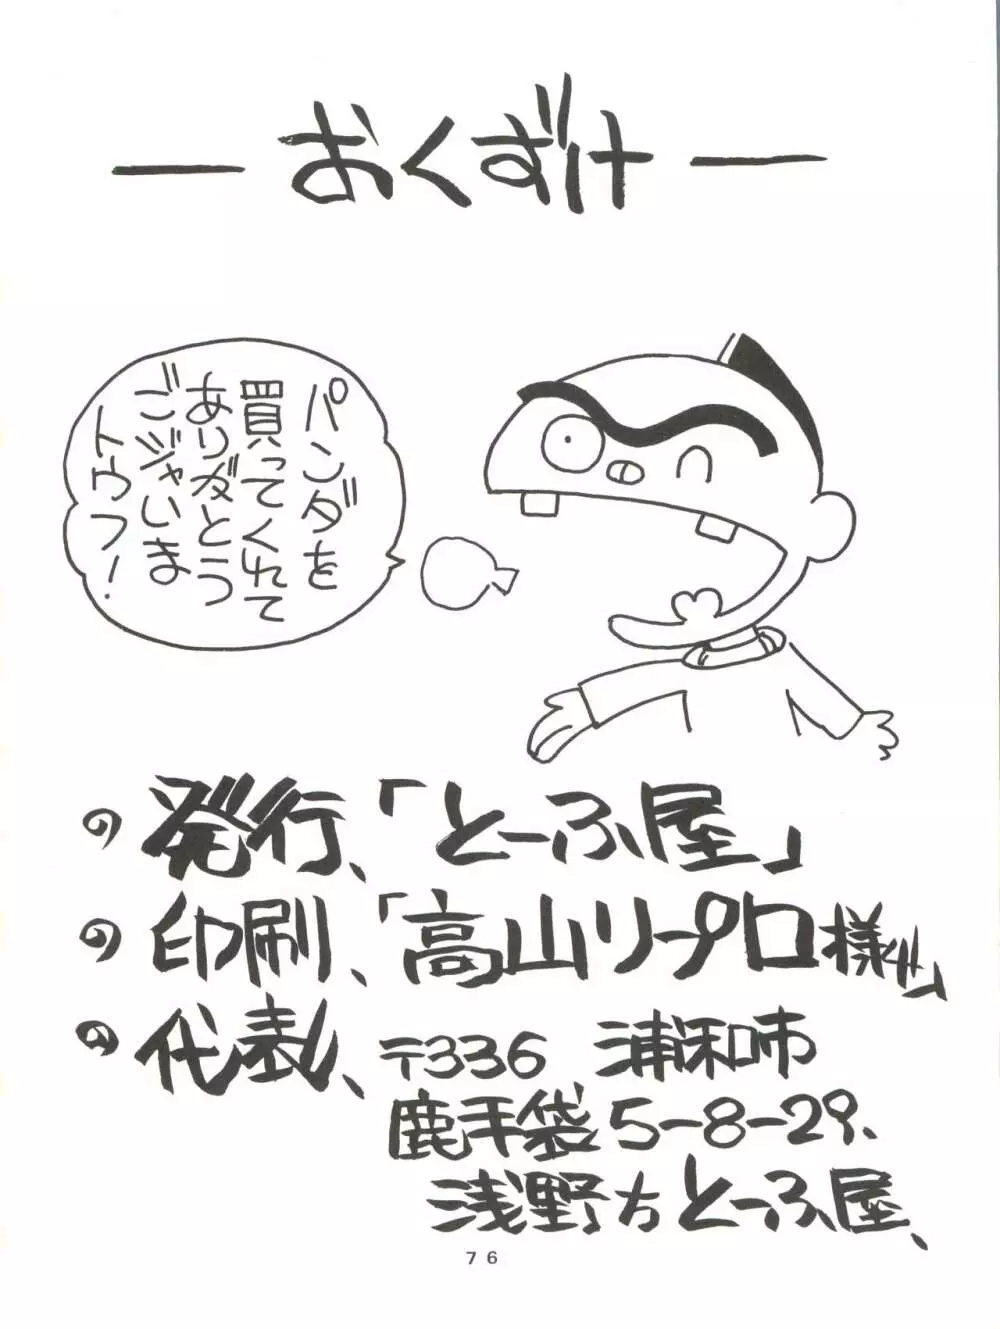 ーおくずけー
パンダを
買ってくれて
ありがとう
ごジャいま
トウフ！
の発行、「とーふ屋」
の印刷、「高山リープロ様サ」
の代表、〒336 浦和市
鹿手袋5-8-29、
浅野方とーふ屋、
76